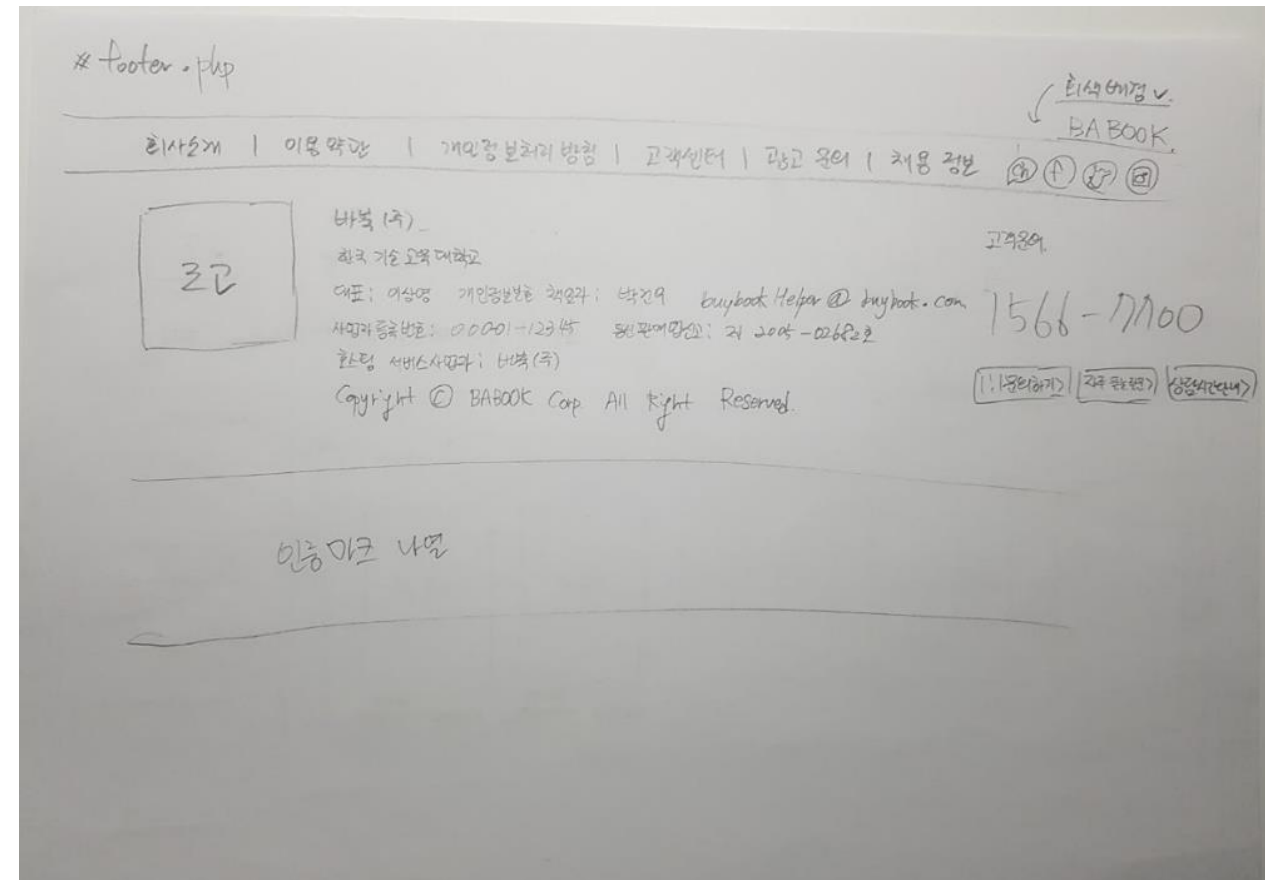 # footer.php
회색배경 ✓.
BABOOK.
회사소개 | 이용약관 | 개인정보처리방침 | 고객센터 | 광고 문의 | 채용 정보
로고
바북(주)
한국 기술 교육 대학교
대표: 이상영 개인정보보호 책임자: 박건어 buybookHelper@buybook.com
사업자등록번호: 00001-12345 통신판매업신고: 제 2005-02682호
호스팅 서비스사업자: 바북(주)
Copyright © BABOOK Corp All Right Reserved.
고객문의.
1566-7700
1:1문의하기> 자주 묻는질문> 상담시간안내>
인증마크 나열